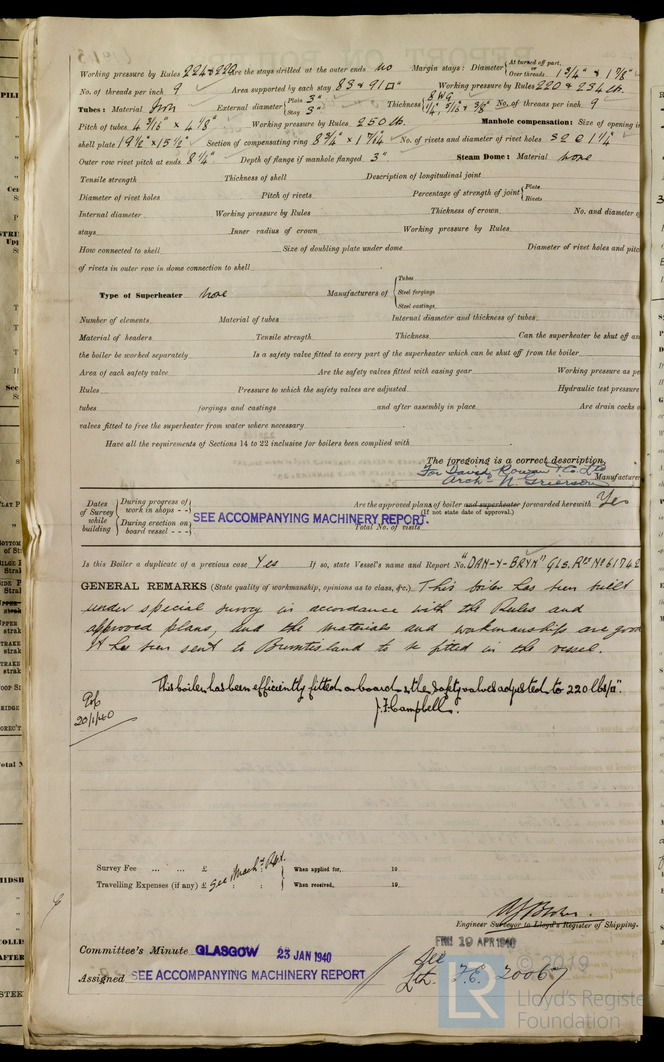 Working pressure by Rules 224 & 222 Are the stays drilled at the outer ends no Margin stays: Diameter { At turned off part, or Over threads 1 3/4" & 1 7/8"
No. of threads per inch 9 Area supported by each stay 83 & 91 □" Working pressure by Rules 220 & 234 lb.
Tubes: Material Iron External diameter { Plain 3" Stay 3" Thickness { 8 WG 1/4", 5/16" & 3/8" No. of threads per inch 9
Pitch of tubes 4 3/16" × 4 1/8" Working pressure by Rules 250 lb. Manhole compensation: Size of opening in
shell plate 19 1/2" × 15 1/2" Section of compensating ring 8 3/4" × 1 No. of rivets and diameter of rivet holes 32 @ 1 1/4"
Outer row rivet pitch at ends 8 1/4" Depth of flange if manhole flanged 3" Steam Dome: Material none
Tensile strength Thickness of shell Description of longitudinal joint
Diameter of rivet holes Pitch of rivets Percentage of strength of joint { Plate Rivets
Internal diameter Working pressure by Rules Thickness of crown No. and diameter o
stays Inner radius of crown Working pressure by Rules
How connected to shell Size of doubling plate under dome Diameter of rivet holes and pitc
of rivets in outer row in dome connection to shell
Type of Superheater none Manufacturers of { Tubes Steel forgings Steel castings
Number of elements Material of tubes Internal diameter and thickness of tubes
Material of headers Tensile strength Thickness Can the superheater be shut off an
the boiler be worked separately Is a safety valve fitted to every part of the superheater which can be shut off from the boiler
Area of each safety valve Are the safety valves fitted with easing gear Working pressure as pe
Rules Pressure to which the safety valves are adjusted Hydraulic test pressure
tubes forgings and castings and after assembly in place Are drain cocks o
valves fitted to free the superheater from water where necessary
Have all the requirements of Sections 14 to 22 inclusive for boilers been complied with
The foregoing is a correct description,
For David Rowan & Co. Ltd
Arch. N. Grierson Manufacturer
Dates of Survey while building { During progress of work in shops - - During erection on board vessel - - - SEE ACCOMPANYING MACHINERY REPORT. Are the approved plans of boiler and superheater forwarded herewith Yes
(If not state date of approval.)
Total No. of visits
Is this Boiler a duplicate of a previous case Yes If so, state Vessel's name and Report No. "DAN-Y-BRYN" GLS. Rpt No 61742
GENERAL REMARKS (State quality of workmanship, opinions as to class, &c.) This boiler has been built
under special survey in accordance with the Rules and
approved plans, and the materials and workmanship are good
It has been sent to Burntisland to be fitted in the vessel.
This boiler has been efficiently fitted on board & the safety valves adjusted to 220 lbs/□".
J. F. Campbell.
20/1/40
Survey Fee ... ... £ See Mach'y Rpt. When applied for, 19
Travelling Expenses (if any) £ : : When received, 19
Engineer Surveyor to Lloyd's Register of Shipping.
Committee's Minute GLASGOW 23 JAN 1940
FRI 19 APR 1940
Assigned SEE ACCOMPANYING MACHINERY REPORT
See
F.E. 20067
LR © 2019
Lloyd's Registe
Foundation